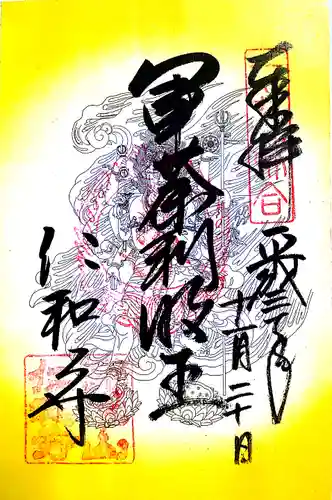 奉拝
平成三十年
十一月二十日
軍荼利明王
仁和寺